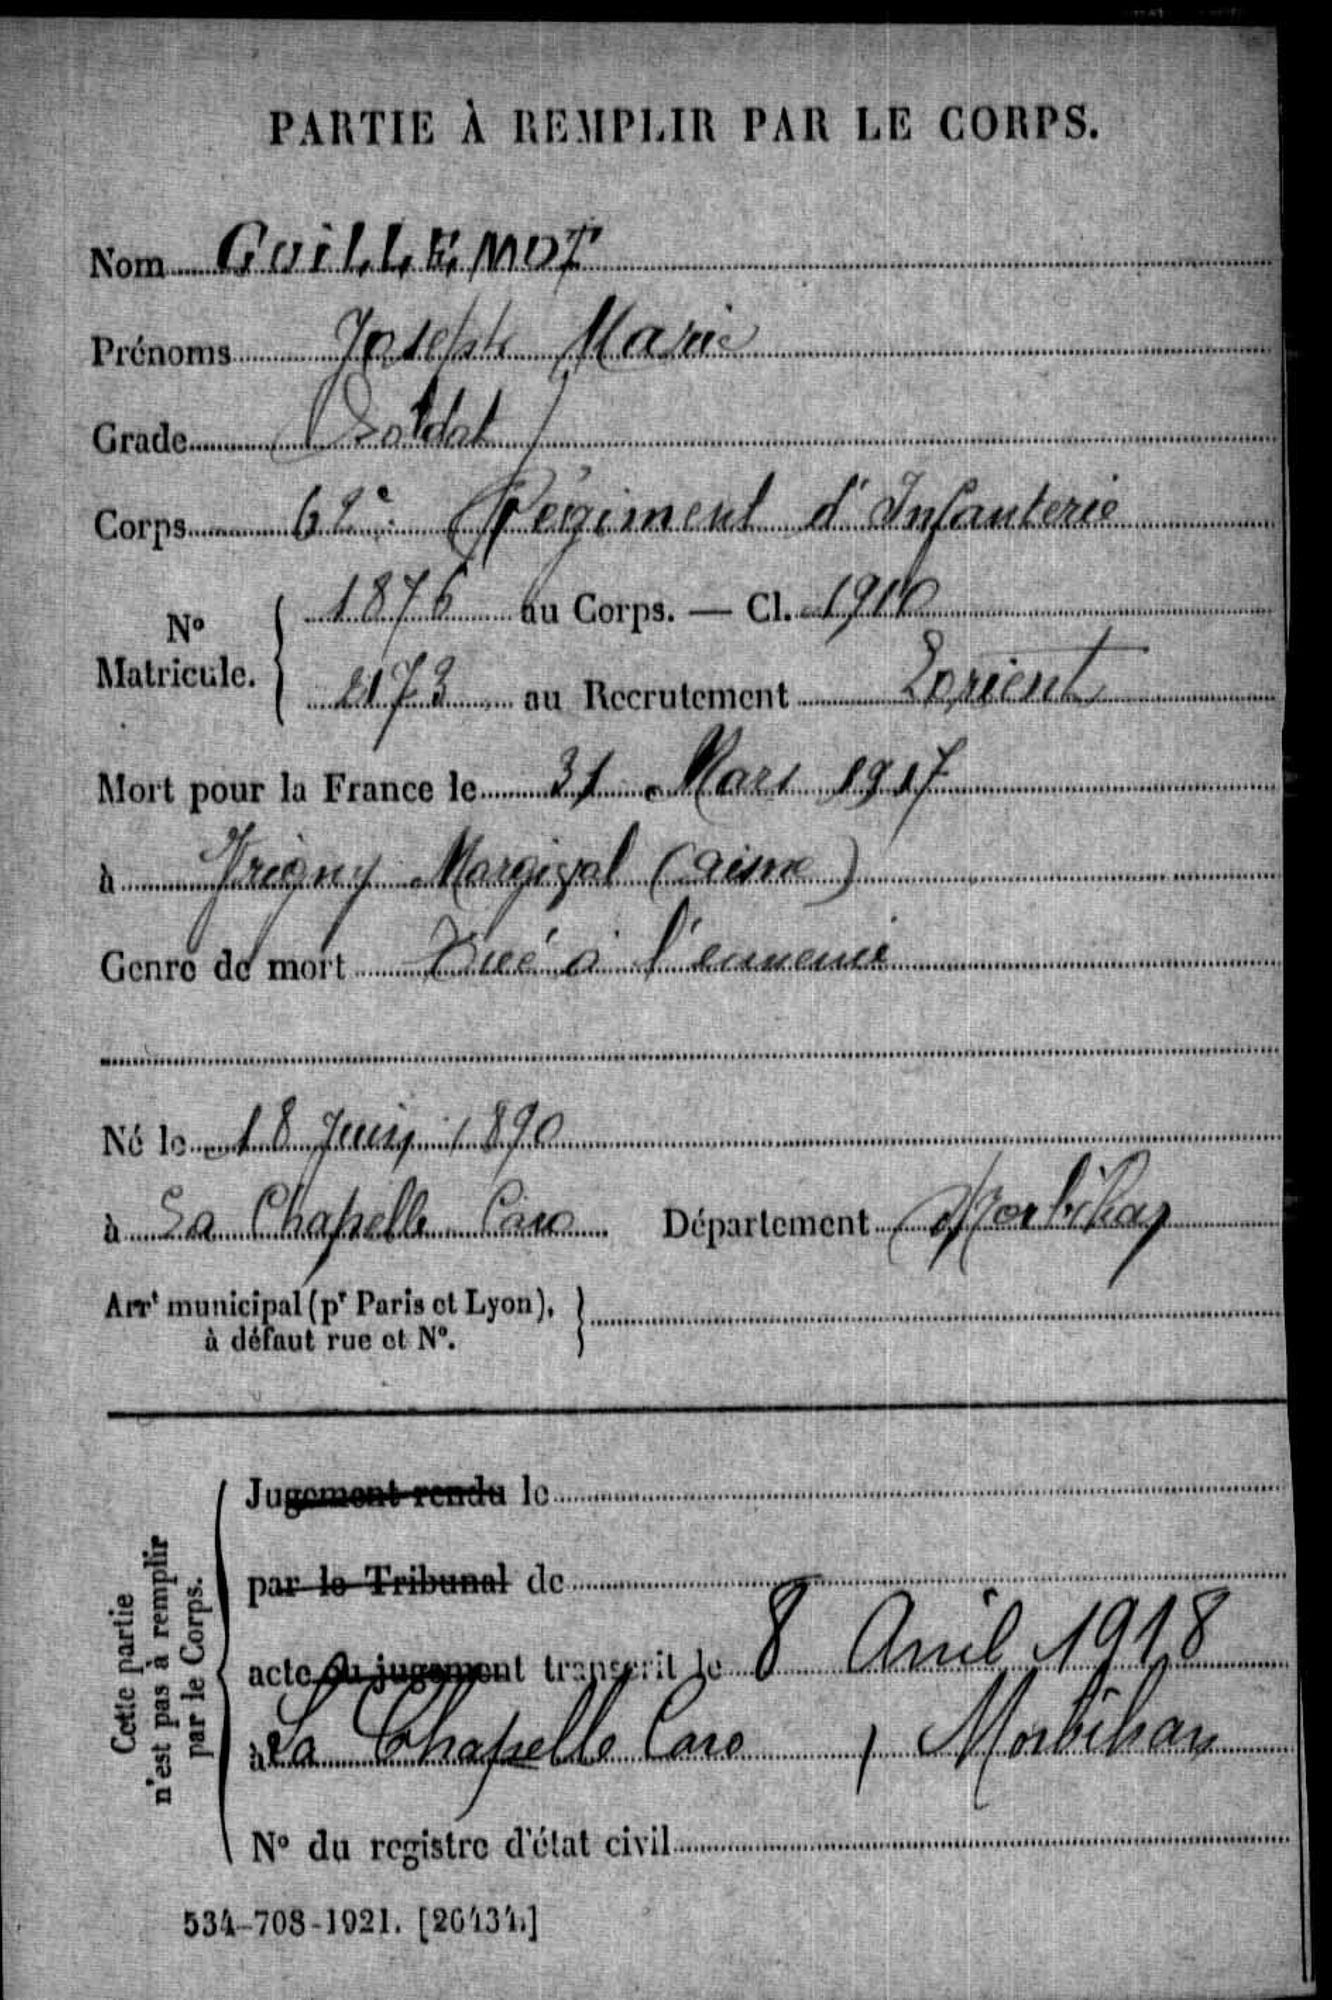 PARTIE À REMPLIR PAR LE CORPS.
Nom GUILLEMOT
Prénoms Joseph Marie
Grade Soldat
Corps 62e Régiment d'Infanterie
N° Matricule. 1876 au Corps. — Cl. 1910
2173 au Recrutement Lorient
Mort pour la France le 31 Mars 1917
à Vrégny Margival (Aisne)
Genre de mort Tué à l'ennemi
Né le 18 Juin 1890
à La Chapelle Caro Département Morbihan
Arrt municipal (pr Paris et Lyon),
à défaut rue et N°.
Cette partie
n'est pas à remplir
par le Corps.
Jugement rendu le
par le Tribunal de
acte ou jugement transcrit le 8 Avril 1918
à La Chapelle Caro, Morbihan
N° du registre d'état civil
534-708-1921. [26434.]